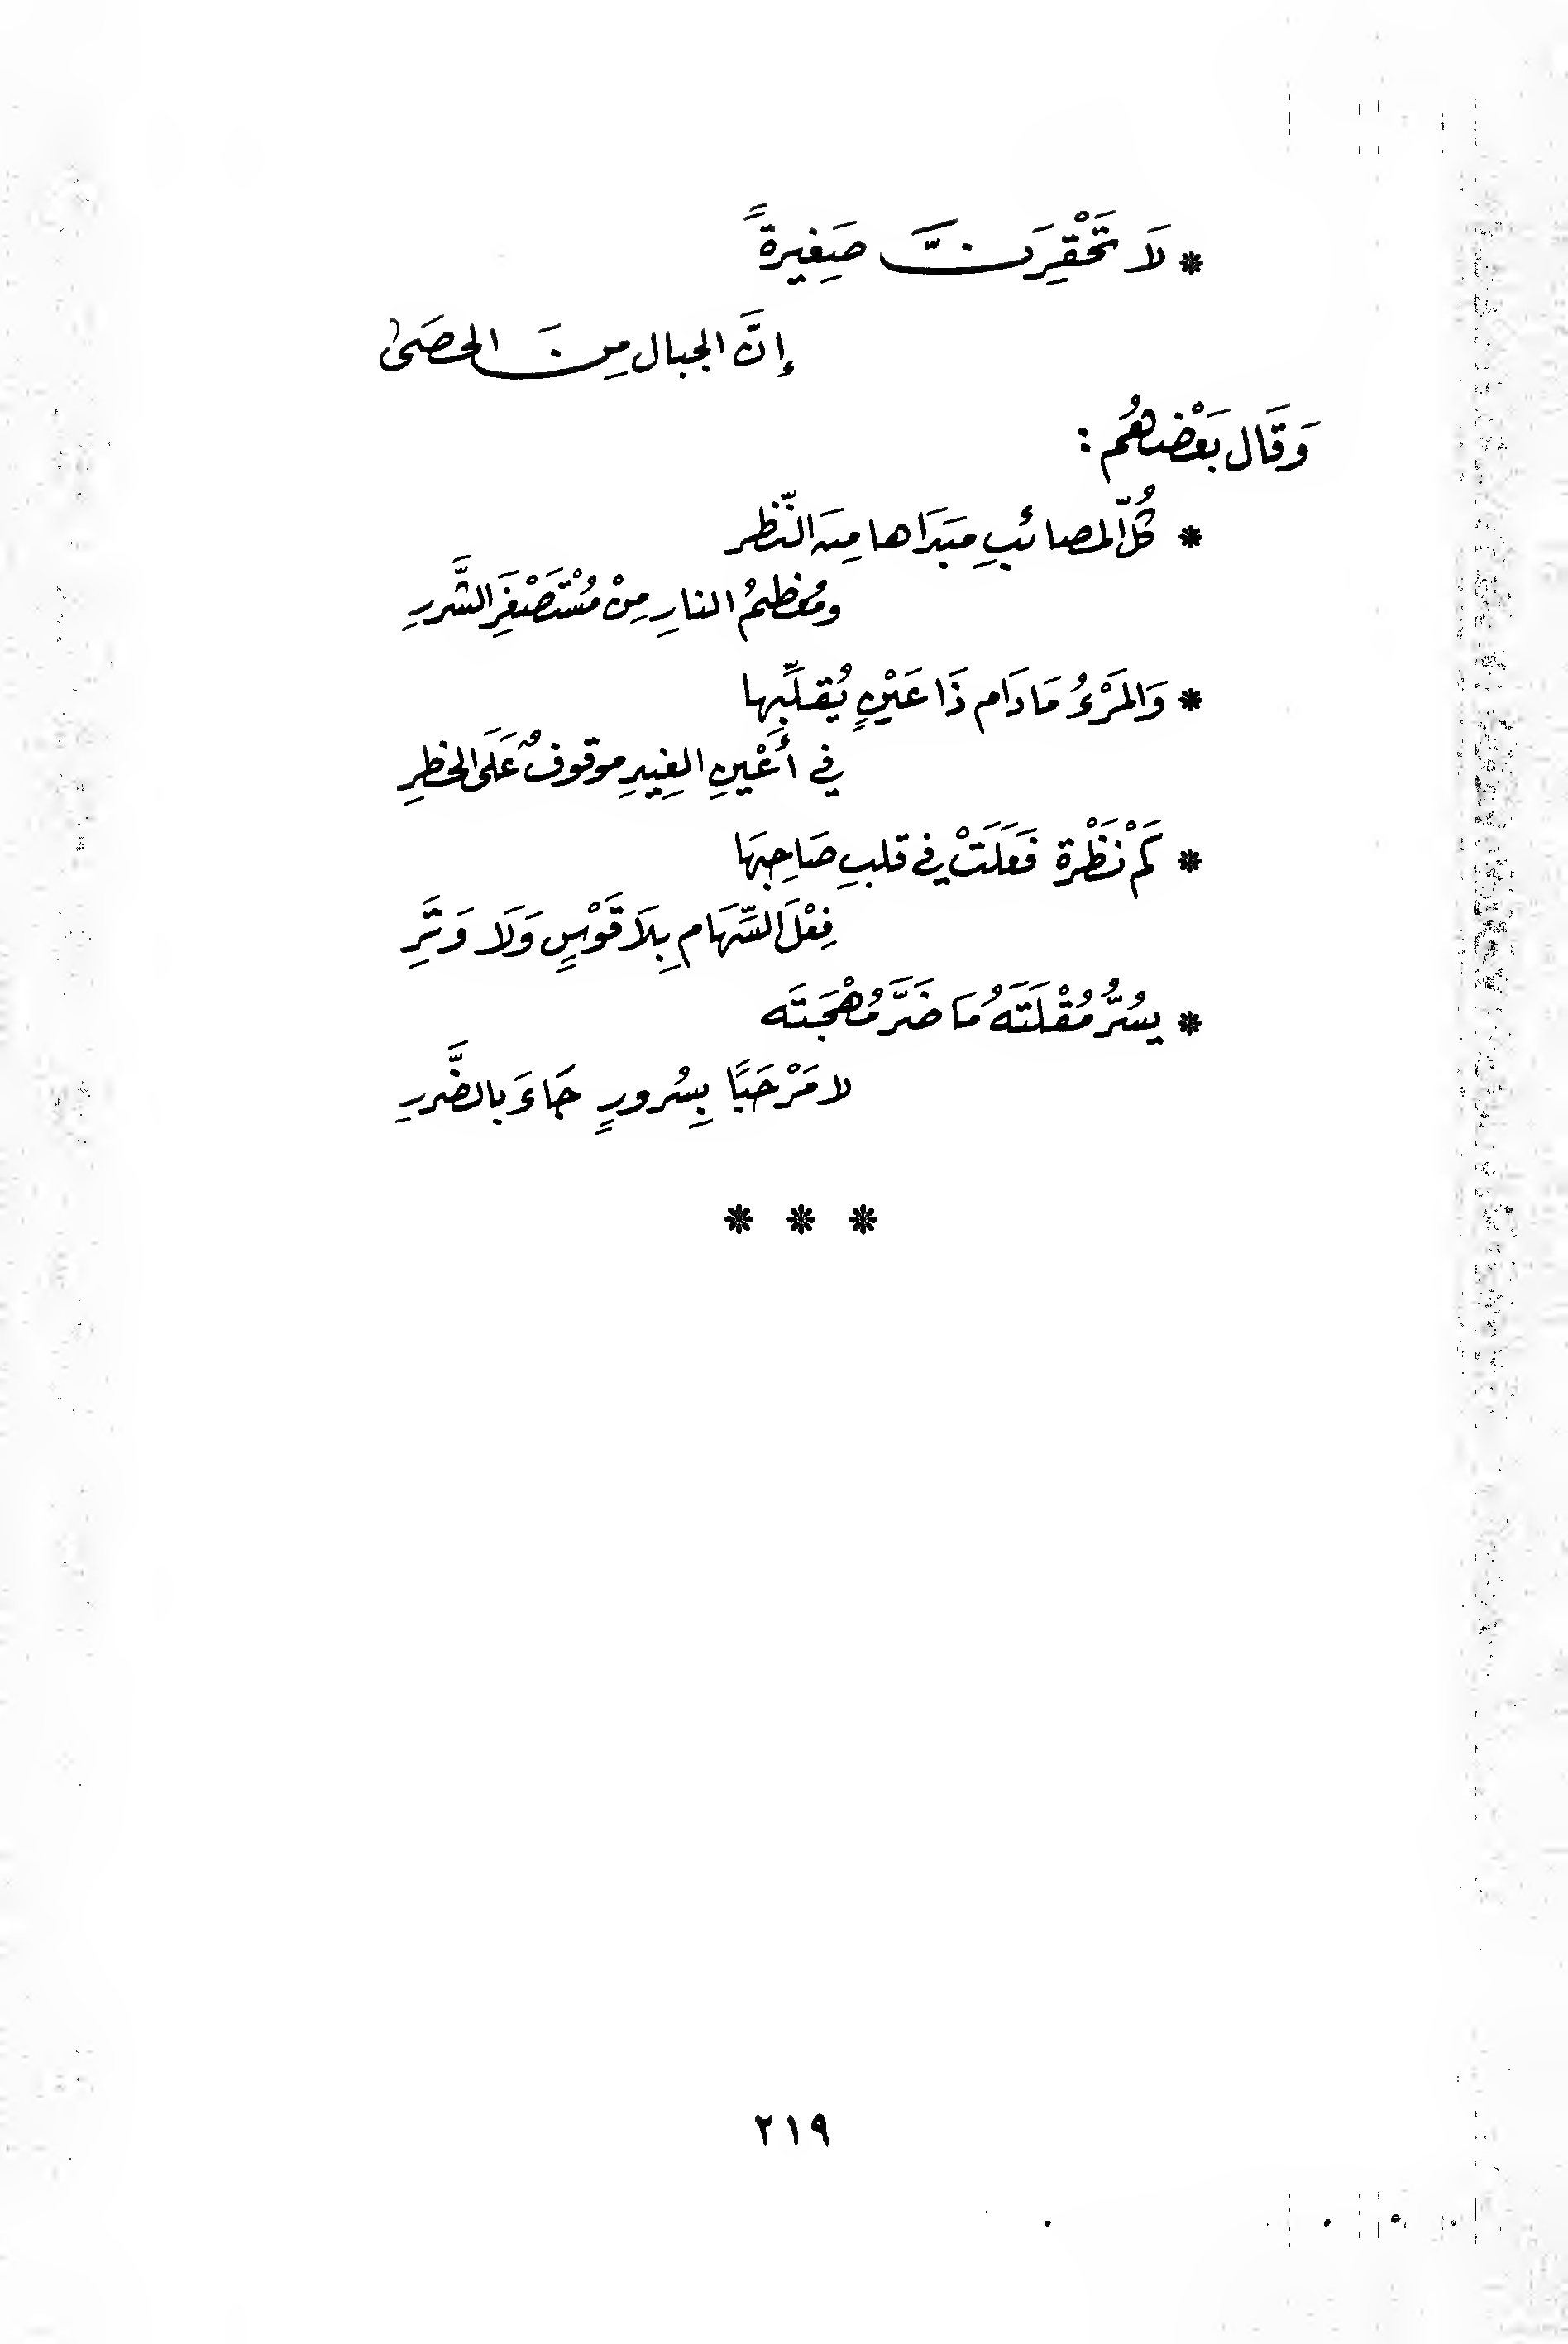 * لَا تَحْقِرَنَّ صَغِيرةً
إنَّ الجبال مِنَ الحصَى
وَقَال بَعْضهُم :
* كُلّ المصائبِ مَبَدَاها مِنَ النّظر
ومُعْظمُ النارِ مِنْ مُسْتَصْغَرِ الشَّررِ
* وَالمَرْءُ مَا دَام ذَا عَيْنٍ يُقلِّبها
في أَعْينِ الغيرِ موقوفٌ عَلَى الخطرِ
* كَمْ نَظْرة فَعَلَتْ في قلبِ صَاحِبهَا
فِعْلَ السِّهَام بِلَا قَوْسٍ وَلَا وَتَرِ
* يسُرُّ مُقْلَتَهُ مَا ضَرَّ مُهْجَتَه
لا مَرْحَبًا بِسُرورٍ جَاءَ بالضَّررِ
* * *
٢١٩